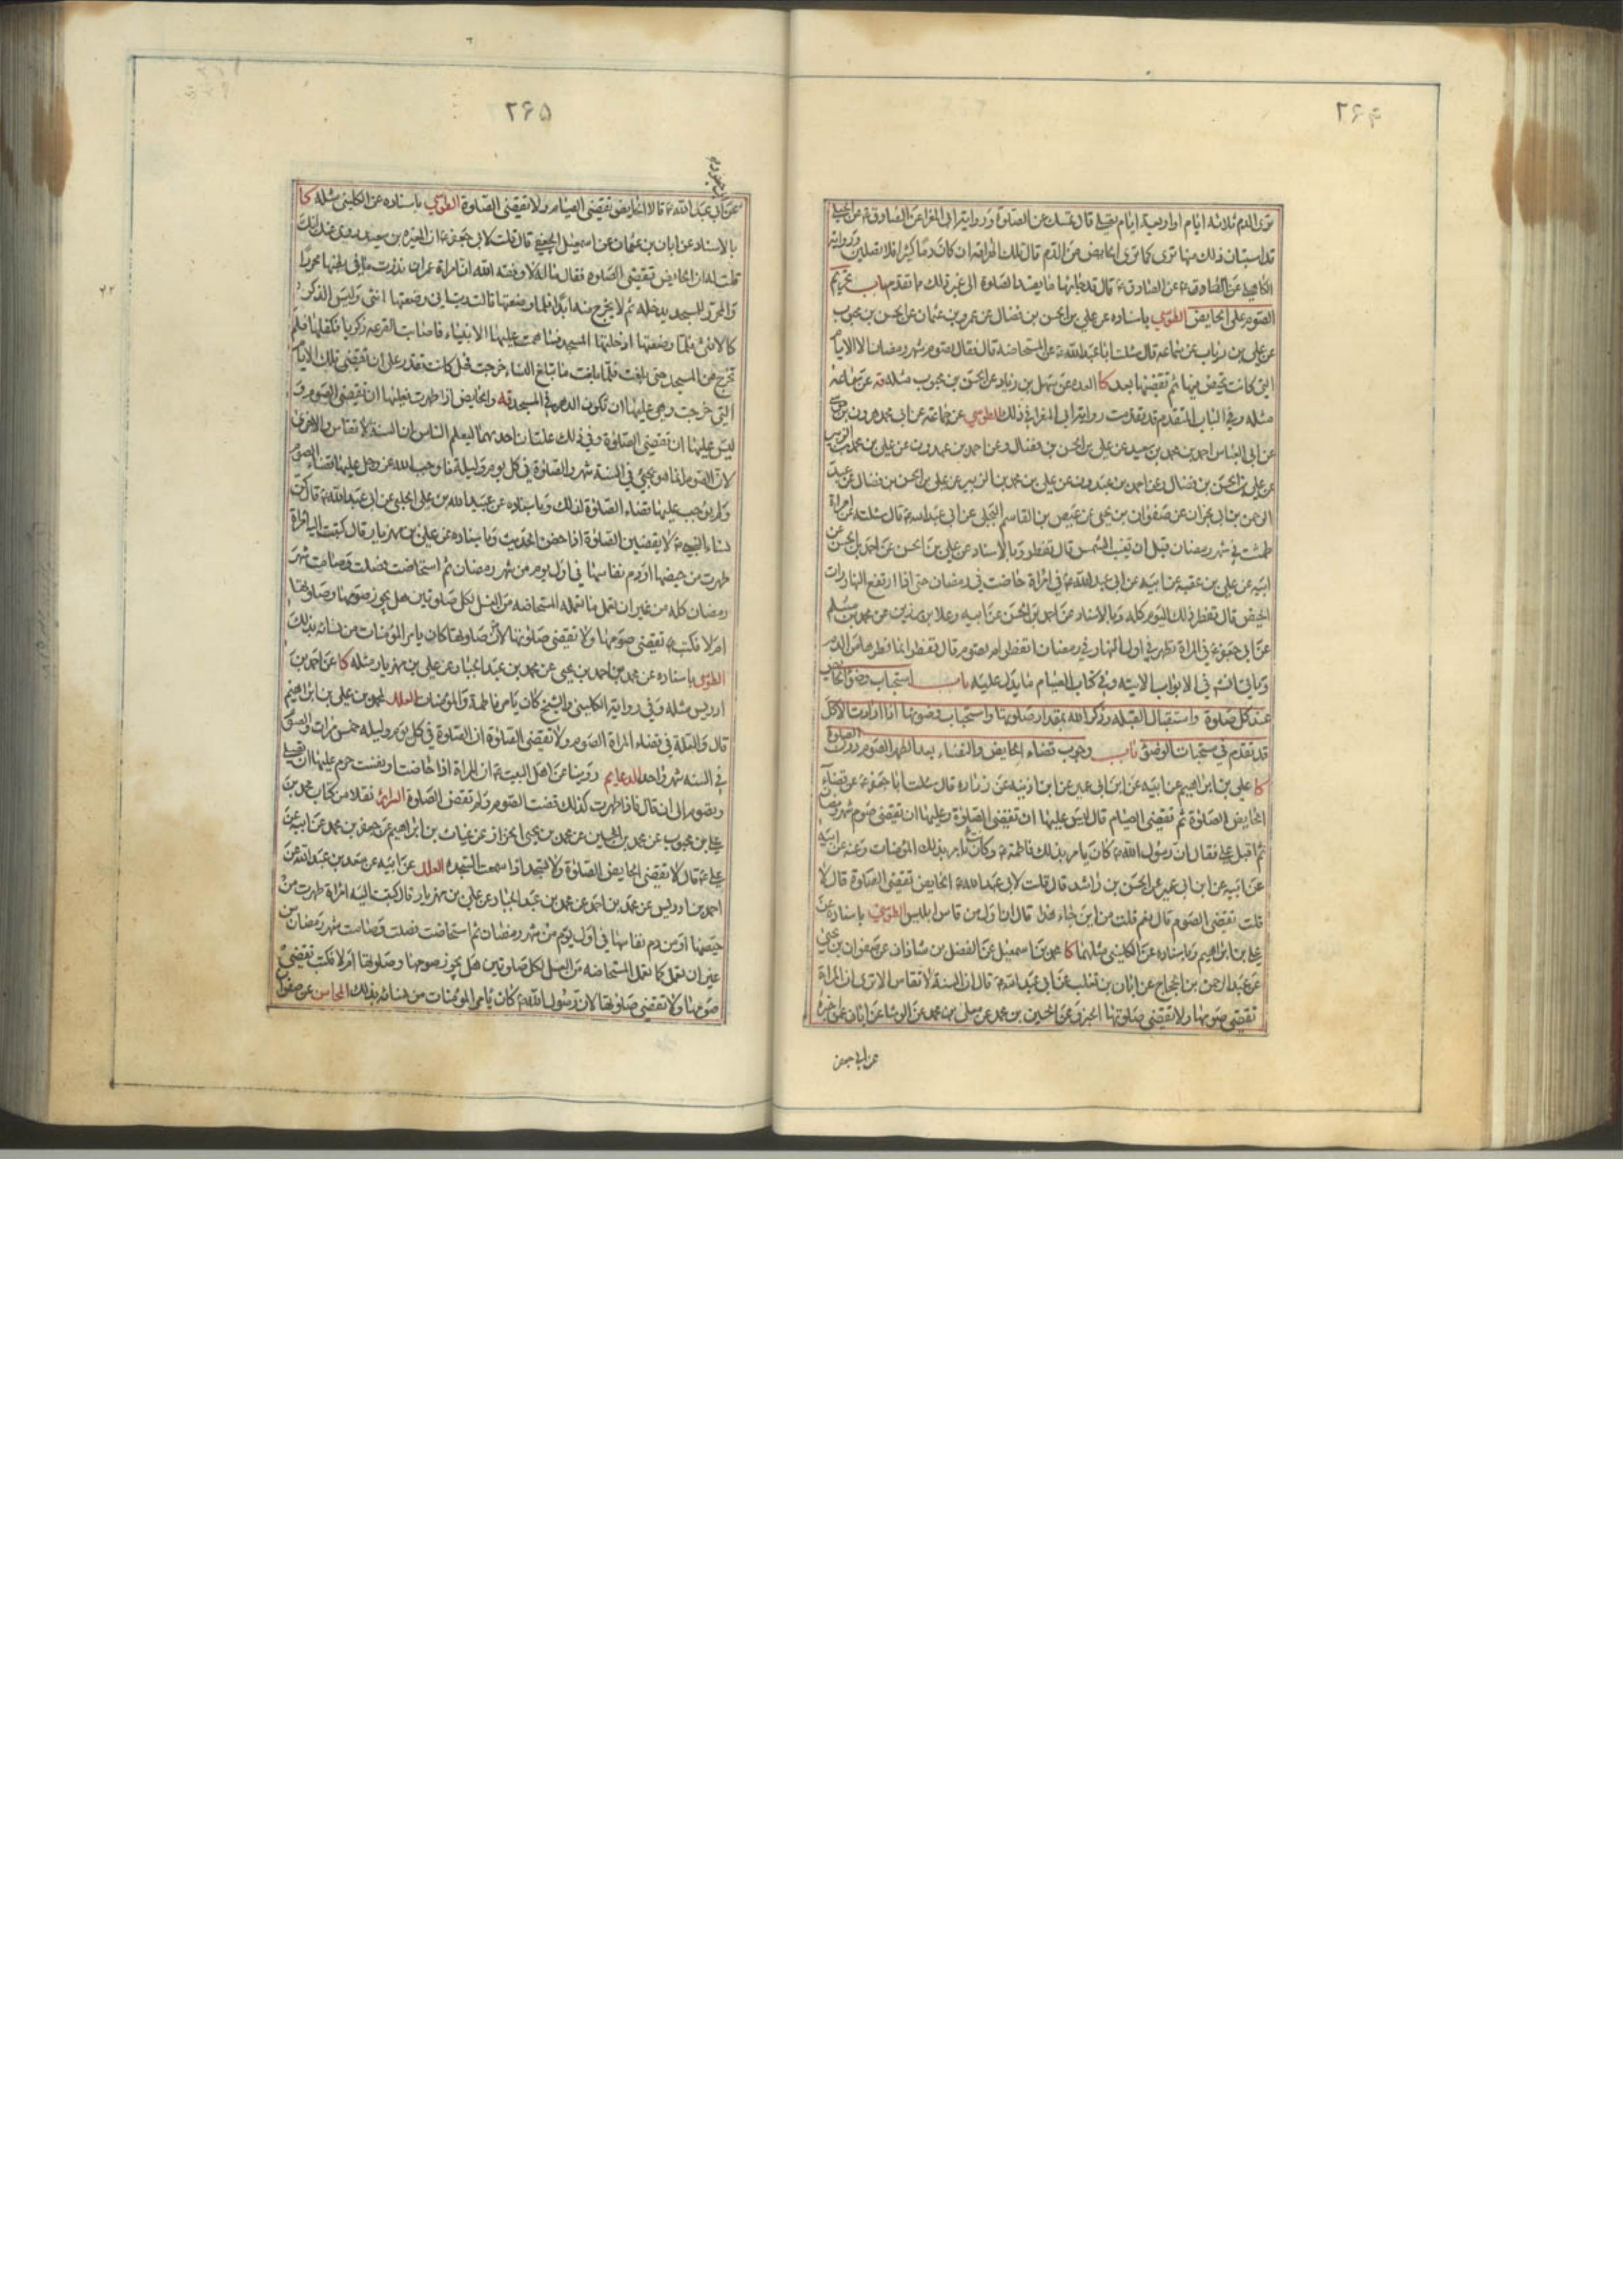 ۲۶۴
ترى الدم ثلاثة ايام او اربعة ايام يصلى قال تمسك عن الصلوة وروايته ابى المغرا عن الصادق ع عن الحبلى
قد استبان ذلك منها ترى كما ترى الحايض من الدم قال تلك الهراقة ان كان دما كثيرا فلا تصلين ورواية
عن الصادق ع قال قد مما يفسد الصلوة الى غير ذلك مما تقدم باب تحريم
الصوم على الحايض الطوسي باسناده عن على بن الحسن بن فضال عن عمرو بن عثمان عن الحسن بن محبوب
عن على بن رياب عن سماعه قال سئلت ابا عبد الله ع عن المستحاضة قال فقال تصوم شهر رمضان الا الايام
التي كانت تحيض فيها ثم تقضيها بعد كا العده عن سهل بن زياد عن الحسن بن محبوب مثله قه عن سماعه
مثله وفى الباب المتقدم قد تقدمت رواية ابى المغرا في ذلك الطوسي عن جماعة عن ابى محمد هرون بن موسى
عن ابى العباس احمد بن محمد بن سعيد عن على بن الحسن بن فضال وعن احمد بن عبدون عن على بن محمد بن الزبير
عن على بن الحسن بن فضال وعن احمد بن عبدون عن على بن محمد بن الزبير عن على بن الحسن بن فضال عن عبد
الرحمن بن ابى نجران عن صفوان بن يحيى عن عيص بن القاسم البجلى عن ابى عبد الله ع قال سئلته عن امراة
طمثت في شهر رمضان قبل ان تغيب الشمس قال تفطر وبالاسناد عن على بن الحسن عن احمد بن الحسن عن
ابيه عن على بن عقبه عن ابيه عن ابى عبد الله ع في امراة حاضت في رمضان حتى اذا ارتفع النهار رات
الحيض قال تفطر ذلك اليوم كله وبالاسناد عن احمد بن الحسن عن ابيه وعلا بن رزين عن محمد بن مسلم
عن ابى جعفر ع في المراة تطهر في اول النهار في رمضان اتفطر ام تصوم قال تفطر انما فطرها من الدم
وياتي انشه في الابواب الاتيه وفى كتاب الصيام ما يدل عليه باب استحباب وضوء الحايض
عند كل صلوة واستقبال القبله وذكر الله بمقدار صلوتها واستحباب وضوئها اذا ارادت الاكل
قد تقدم في مستحبات الوضوء باب وجوب قضاء الحايض والنفساء بعد الطهر الصوم دون الصلوة
كا على بن ابراهيم عن ابيه عن ابن ابى عمير عن ابن اذينه عن زراره قال سئلت ابا جعفر ع عن قضاء
الحايض الصلوة ثم تقضى الصيام قال ليس عليها ان تقضى الصلوة وعليها ان تقضى صوم شهر رمضان
ثم اقبل على فقال ان رسول الله ص كان يامر بذلك فاطمة ع وكانت تامر بذلك المؤمنات وعنه عن ابيه
عن ابيه عن ابن ابى عمير عن الحسن بن راشد قال قلت لابى عبد الله ع الحايض تقضى الصلوة قال لا
قلت تقضى الصوم قال نعم قلت من اين جاء هذا قال ان اول من قاس ابليس الطوسي باسناده عن
على بن ابراهيم وباسناده عن الكليني مثلهما كا محمد بن اسمعيل عن الفضل بن شاذان عن صفوان بن يحيى
عن عبد الرحمن بن الحجاج عن ابان بن تغلب عن ابى عبد الله ع قال ان السنة لا تقاس الا ترى ان المراة
تقضى صومها ولا تقضى صلوتها الخبر وعن الحسين بن محمد عن معلى بن محمد عن الوشا عن ابان عمن اخبره
عن ابي جعفر
۲۶۵
عن ابى جعفر و
عن ابى عبد الله ع قالا الحايض تقضى الصيام ولا تقضى الصلوة الطوسي باسناده عن الكليني مثله كا
بالاسناد عن ابان بن عثمان عن اسمعيل الجعفي قال قلت لابى جعفر ع ان المغيره بن سعيد روى عنك انك
قلت له ان الحايض تقضى الصلوة فقال ماله لا وفقه الله ان امراة عمران نذرت ما في بطنها محررا
والمحرر للمسجد يدخله ثم لا يخرج منه ابدا فلما وضعتها قالت رب اني وضعتها انثى وليس الذكر
كالانثى فلما وضعتها ادخلتها المسجد فساهمت عليها الانبياء فاصابت القرعه زكريا فكفلها فلم
تخرج من المسجد حتى بلغت فلما بلغت ما تبلغ النساء خرجت فهل كانت تقدر على ان تقضى تلك الايام
التي خرجت وهي عليها ان تكون الدهر في المسجد قه والحايض اذا طهرت فعليها ان تقضى الصوم و
ليس عليها ان تقضى الصلوة وفي ذلك علتان احديهما ليعلم الناس ان السنة لا تقاس والاخرى
لان الصوم انما هو يجيئ في السنة شهر والصلوة في كل يوم وليلة فاوجب الله عز وجل عليها قضاء الصوم
ولم يوجب عليها قضاء الصلوة لذلك وباسناده عن عبيد الله بن على الحلبى عن ابى عبد الله ع قال كن
نساء النبي ص لا يقضين الصلوة اذا حضن الحديث وباسناده عن على بن مهزيار قال كتبت اليه امراة
طهرت من حيضها او دم نفاسها في اول يوم من شهر رمضان ثم استحاضت فصلت وصامت شهر
رمضان كله من غير ان تعمل ما تعمله المستحاضه من الغسل لكل صلوتين هل يجوز صومها وصلوتها
ام لا فكتب ع تقضى صومها ولا تقضى صلوتها لان ص كان يامر المؤمنات من نسائه بذلك
الطوسي باسناده عن محمد بن احمد بن يحيى عن محمد بن عبد الجبار عن على بن مهزيار مثله كا عن احمد بن
ادريس مثله وفى رواية الكليني والشيخ كان يامر فاطمة والمؤمنات العلل محمد بن على بن ابراهيم
قال والعلة في قضاء المراة الصوم ولا تقضى الصلوة ان الصلوة في كل يوم وليله خمس مرات والصوم
في السنه شهر واحد الدعايم روينا عن اهل البيت ع ان المراة اذا حاضت او نفست حرم عليها ان تصلى
وتصوم الى ان قال فاذا طهرت كذلك قضت الصوم ولم تقض الصلوة السرائر نقلا من كتاب محمد بن
على بن محبوب عن محمد بن الحسين عن محمد بن يحيى الخزاز عن غياث بن ابراهيم عن جعفر بن محمد عن ابيه عن
على ع قال لا تقضى الحايض الصلوة ولا تسجد اذا سمعت السجده العلل عن ابيه عن سعد بن عبد الله عن
احمد بن ادريس عن محمد بن احمد عن محمد بن عبد الجبار عن على بن مهزيار قال كتبت اليه امراة طهرت من
حيضها او من دم نفاسها في اول يوم من شهر رمضان ثم استحاضت فصلت وصامت شهر رمضان من
غير ان تعمل كما تعمل المستحاضه من الغسل لكل صلوتين هل يجوز صومها وصلوتها ام لا فكتب تقضى
صومها ولا تقضى صلوتها لان رسول الله ص كان يامر المؤمنات من نسائه بذلك المحاسن عن صفوان